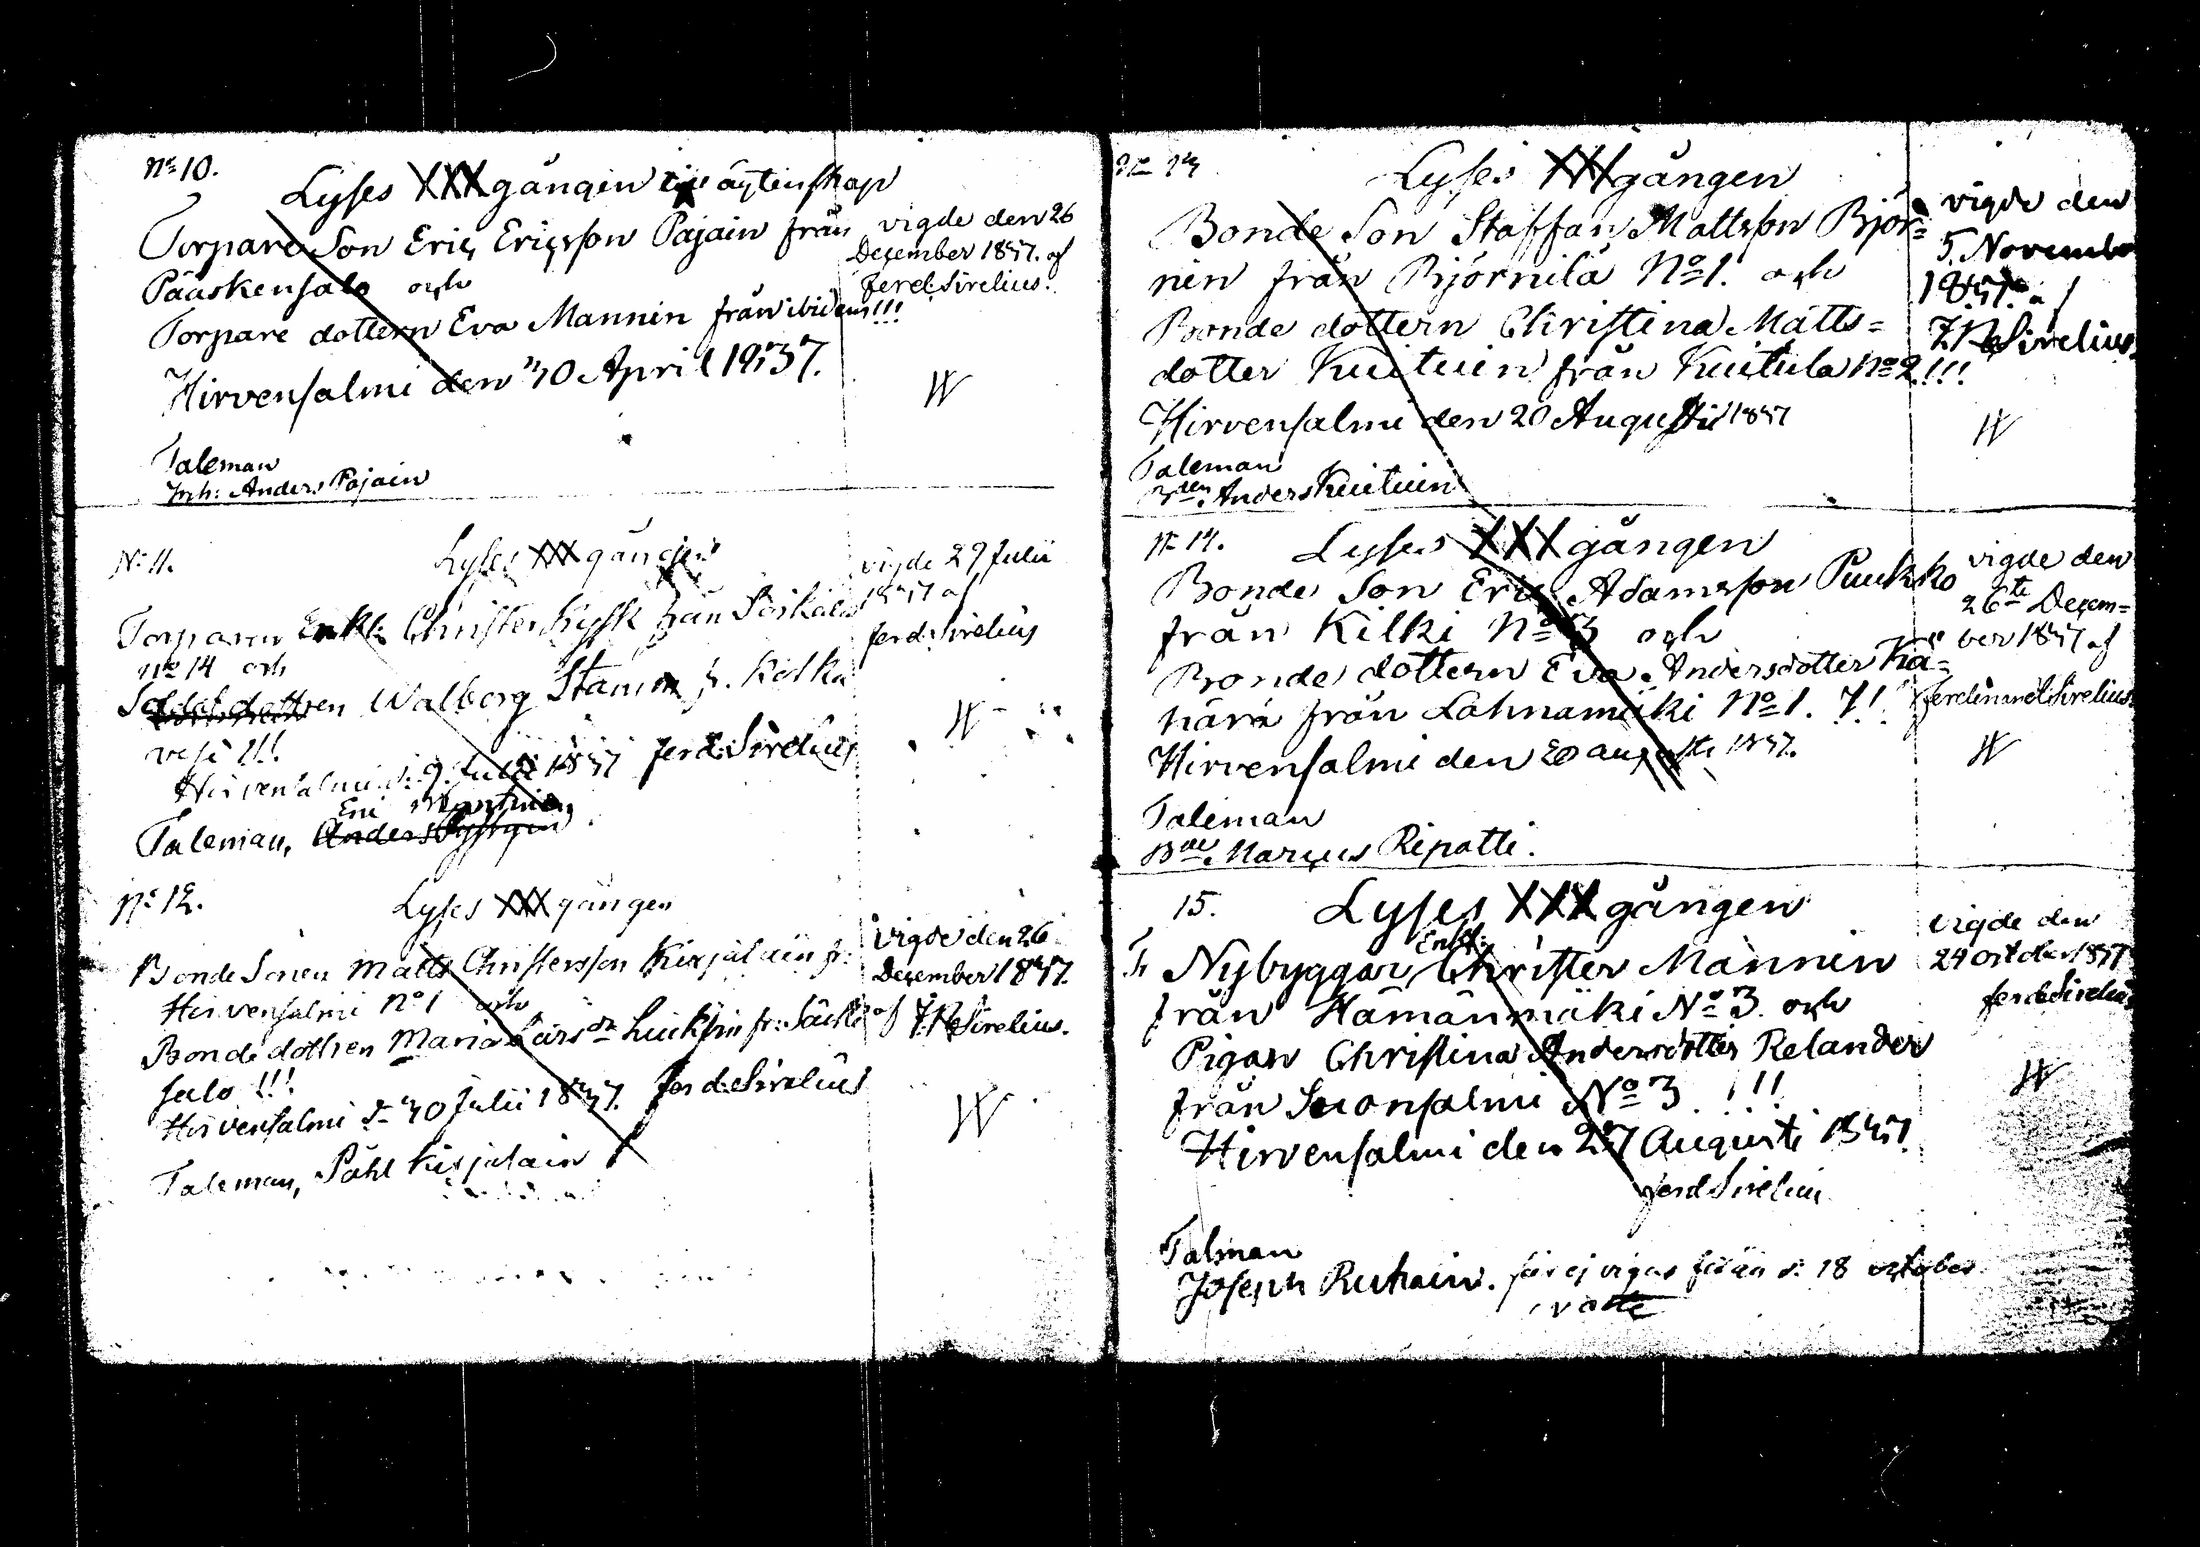 No 10.
Lyses XXX gången till ägtenskap
Torpare Son Eric Ericsson Pajain från
Pääskensalo och
Torpare dottern Eva Mannin från ibidem!!!
Hirvensalmi den 30 April 1837.
Taleman
Anders Pajain
vigde den 26
December 1837. af
Ferd. Sirelius.
No 11.
Lyses XXX gången
Torparen Enkl: Christer Kysk från
No 14 och
Soldat dottren Walborg Stamm fr. Kotka
vesi !!!
Hirvensalmi d. 9 Julii 1837 Ferd. Sirelius
Taleman,
vigde 29 Julii
1837 af
Ferd. Sirelius
No 12.
Lyses XXX gången
Bonde Sonen Matts Christersson Kirjalain fr.
Hirvensalmi No 1 och
Bonde dottren Maria Larsdr fr:
salo !!!
Hirvensalmi d. 30 Julii 1837. Ferd. Sirelius
Taleman, Påhl Kirjalain
vigde den 26
December 1837.
af F. Sirelius.
No 13
Lyses XXX gången
Bonde Son Staffan Mattsson Björ=
nin från Björnilä No 1. och
Bonde dottern Christina Matts=
dotter Kuituin från Kuitula No 2!!!
Hirvensalmi den 20 Augusti 1837
Taleman
Anders Kuituin
vigde den
5 November
1837. af
Sirelius.
No 14.
Lyses XXX gången
Bonde Son Eric Adamsson Puukko
från Kilki No 3 och
Bonde dottern Eva Andersdotter Kia=
närä från Lahnamäki No 1. !!!
Hirvensalmi den 20 augusti 1837.
Taleman
Marcus Ripatti.
vigde den
26te Decem=
ber 1837 af
Ferdinand Sirelius
15.
Lyses XXX gången
Nybyggar Enkl: Christer Männin
från Hämänmäki No 3. och
Pigan Christina Andersdotter Relander
från Suonsalmi No 3 !!!
Hirvensalmi den 27 Augusti 1837.
Ferd Sirelius
Talman
Joseph Ruhain. får ej vigas förän d. 18 october
vigde den
29 october 1837
Ferd. Sirelius